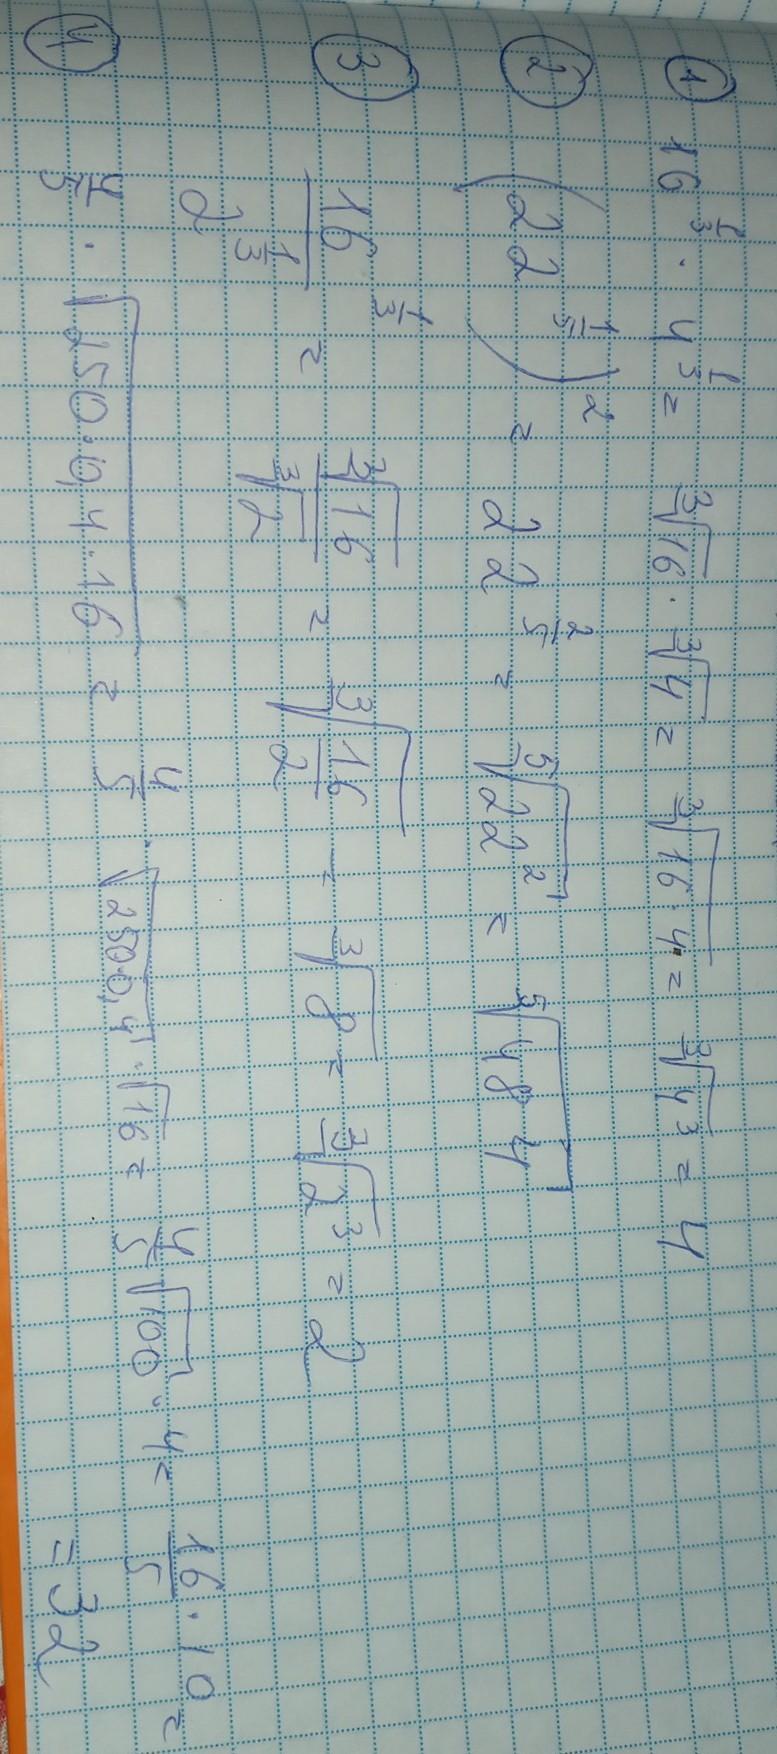 ①
16^(1/3) · 4^(1/3) = ∛16 · ∛4 = ∛(16·4) = ∛(4³) = 4
②
(22^(1/5))² = 22^(2/5) = ⁵√(22²) = ⁵√484
③
16^(1/3) / 2^(1/3) = ∛16 / ∛2 = ∛(16/2) = ∛8 = ∛(2³) = 2
④
4/5 · √(250·0,4·16) = 4/5 · √(250·0,4) · √16 = 4/5 √100 · 4 = 16/5 · 10 =
= 32